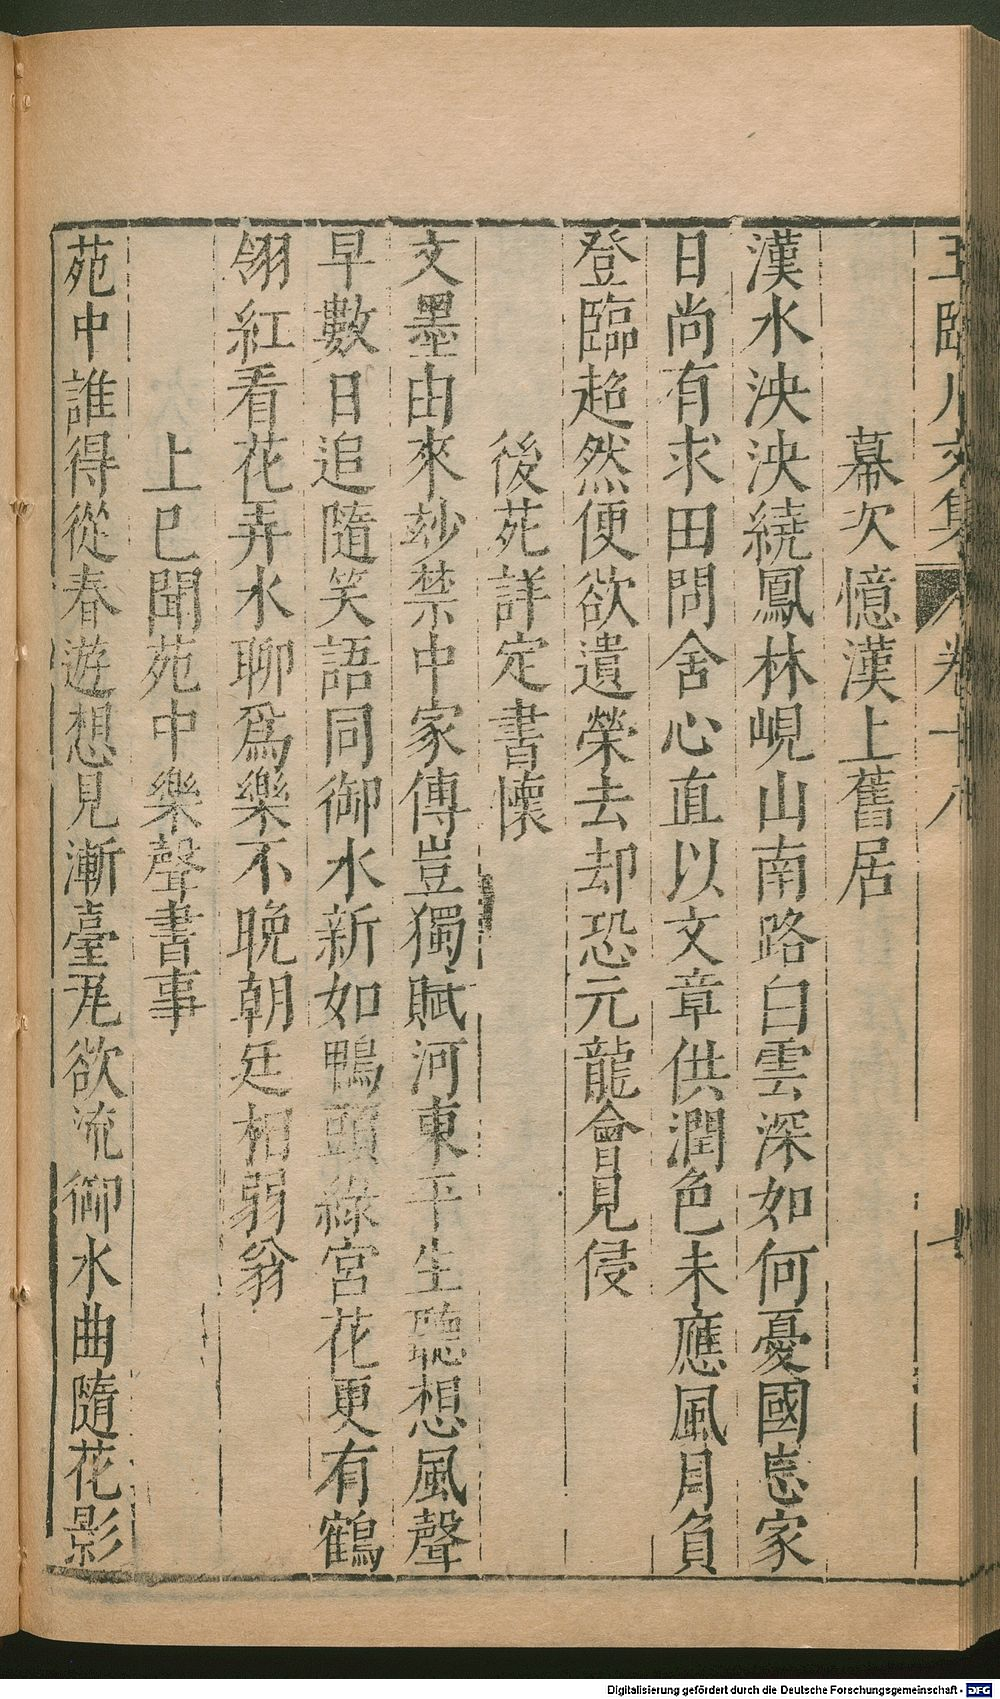 王臨川文集 卷十八
幕次憶漢上舊居
漢水泱泱繞鳳林峴山南路白雲深如何憂國忘家
日尚有求田問舍心直以文章供潤色未應風月負
登臨超然便欲遺榮去却恐元龍會見侵
後苑詳定書懷
文墨由來妙禁中家傳豈獨賦河東平生聽想風聲
早數日追隨笑語同御水新如鴨頭綠宮花更有鶴
翎紅看花弄水聊爲樂不晚朝廷相弱翁
上巳聞苑中樂聲書事
苑中誰得從春遊想見漸臺瓦欲流御水曲隨花影
Digitalisierung gefördert durch die Deutsche Forschungsgemeinschaft - DFG